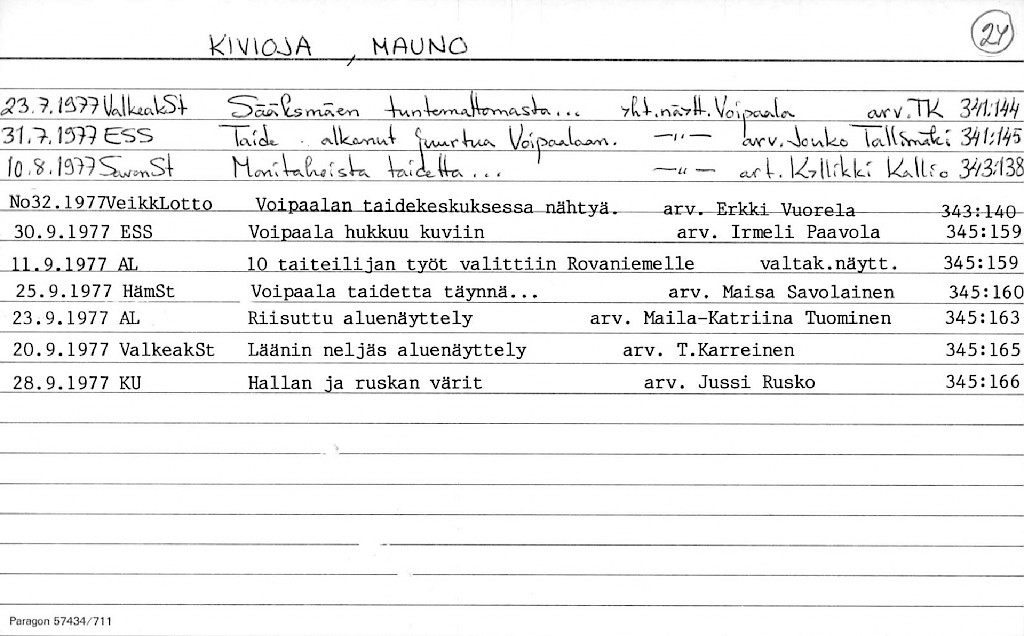 KIVIOJA, MAUNO 24
23.7.1977 ValkeakSt Sääksmäen tuntemattomasta... yht.näytt. Voipaala arv. TK 341:144
31.7.1977 ESS Taide alkanut juurtua Voipaalaan. —"— arv. Jouko Tallimäki 341:145
10.8.1977 SavonSt Monitahoista taidetta... —"— art. Kyllikki Kallio 343:138
No32.1977VeikkLotto Voipaalan taidekeskuksessa nähtyä. arv. Erkki Vuorela 343:140
30.9.1977 ESS Voipaala hukkuu kuviin arv. Irmeli Paavola 345:159
11.9.1977 AL 10 taiteilijan työt valittiin Rovaniemelle valtak.näytt. 345:159
25.9.1977 HämSt Voipaala taidetta täynnä... arv. Maisa Savolainen 345:160
23.9.1977 AL Riisuttu aluenäyttely arv. Maila-Katriina Tuominen 345:163
20.9.1977 ValkeakSt Läänin neljäs aluenäyttely arv. T.Karreinen 345:165
28.9.1977 KU Hallan ja ruskan värit arv. Jussi Rusko 345:166
Paragon 57434/711